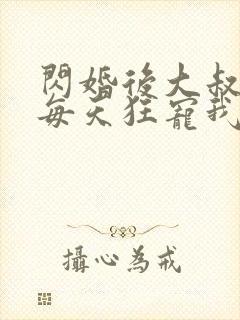 閃婚後大叔
每天狂寵我
攝心為戒